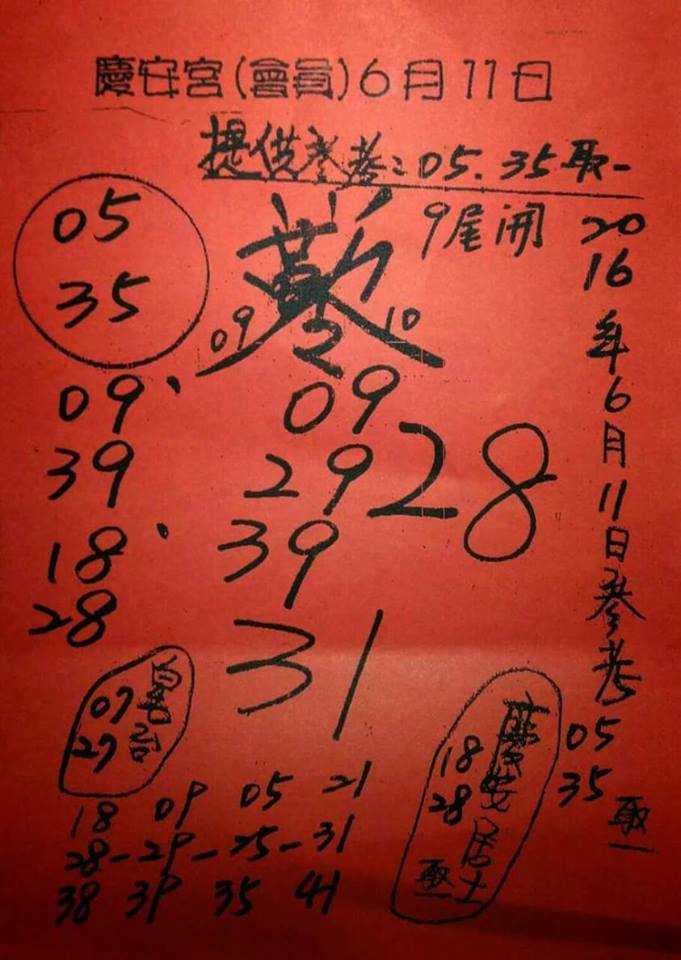 慶安宮(會員)6月11日
提供參考:05.35取一
9尾開
05
35
09 10
09、
39
18、
28
09
29
39
28
31
2016年6月11日參考
05
35
取一
07
27
慶安居士
18
28
取一
18 09 05 21
28-29-25-31
38 39 35 41